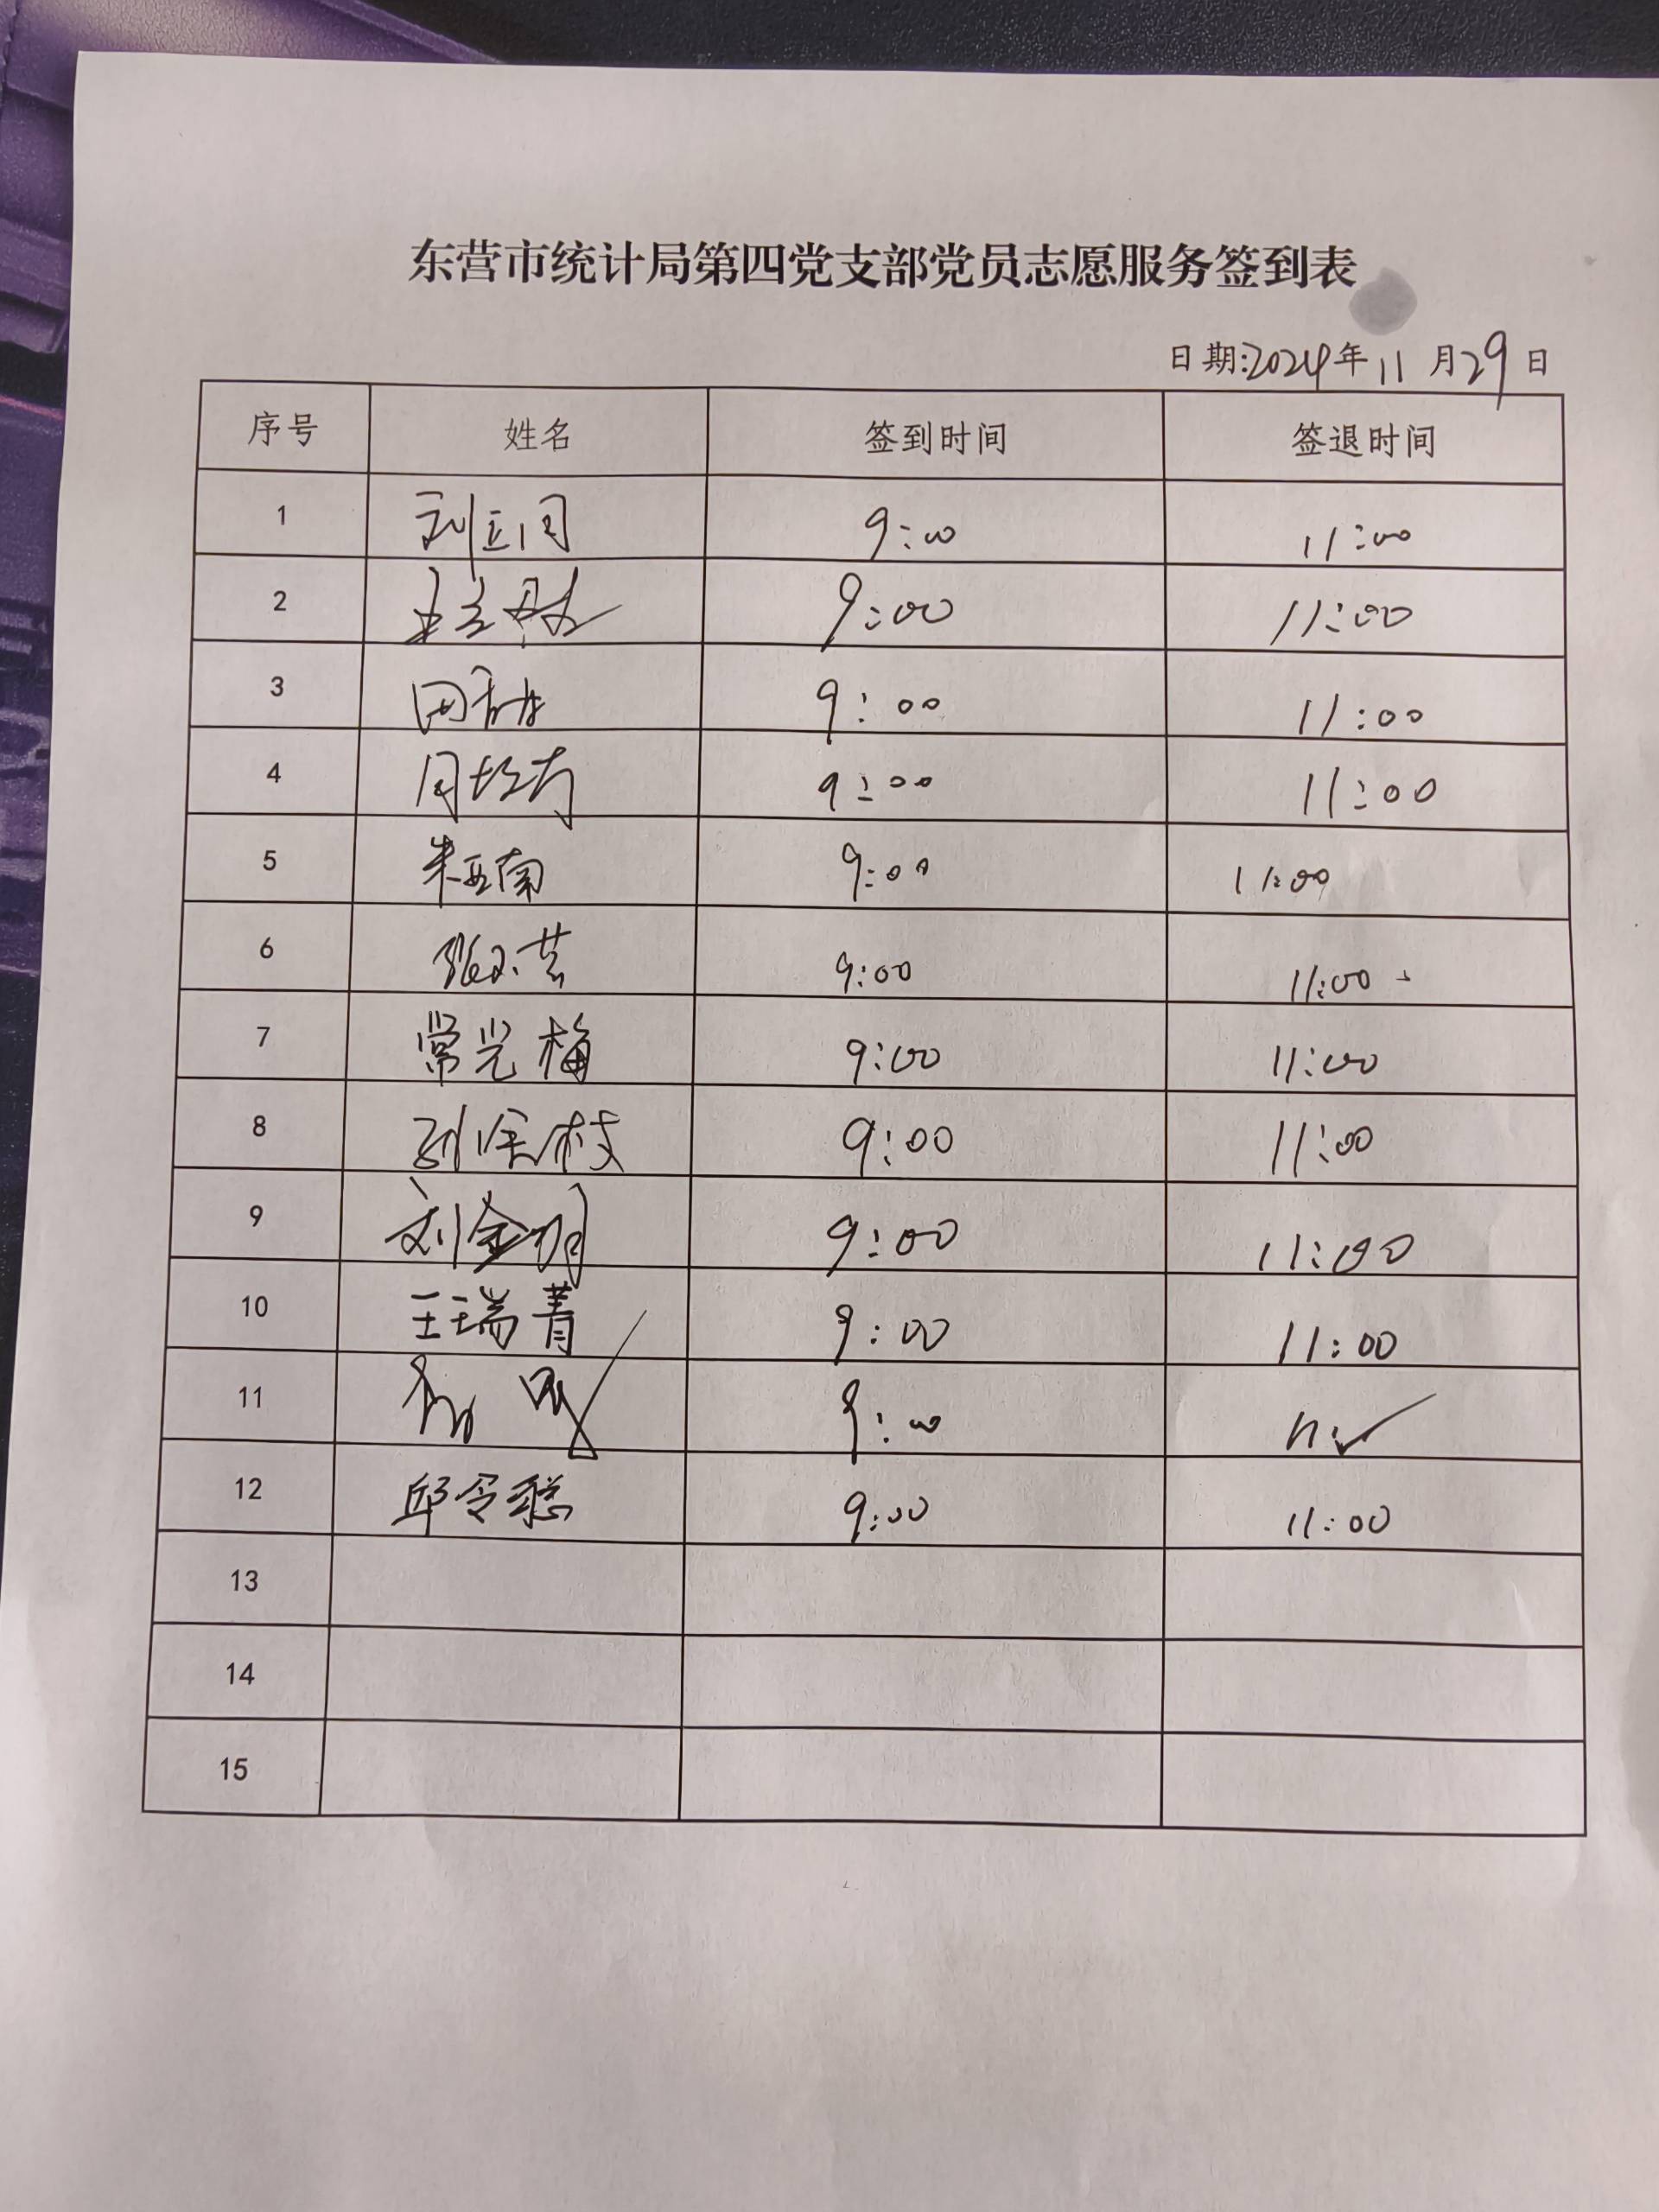 东营市统计局第四党支部党员志愿服务签到表
日期:2024年11月29日
序号 姓名 签到时间 签退时间
1 9:00 11:00
2 9:00 11:00
3 9:00 11:00
4 9:00 11:00
5 朱亚南 9:00 11:00
6 9:00 11:00
7 常光梅 9:00 11:00
8 9:00 11:00
9 刘金明 9:00 11:00
10 王瑞菁 9:00 11:00
11 9:00
12 邱令聪 9:00 11:00
13
14
15